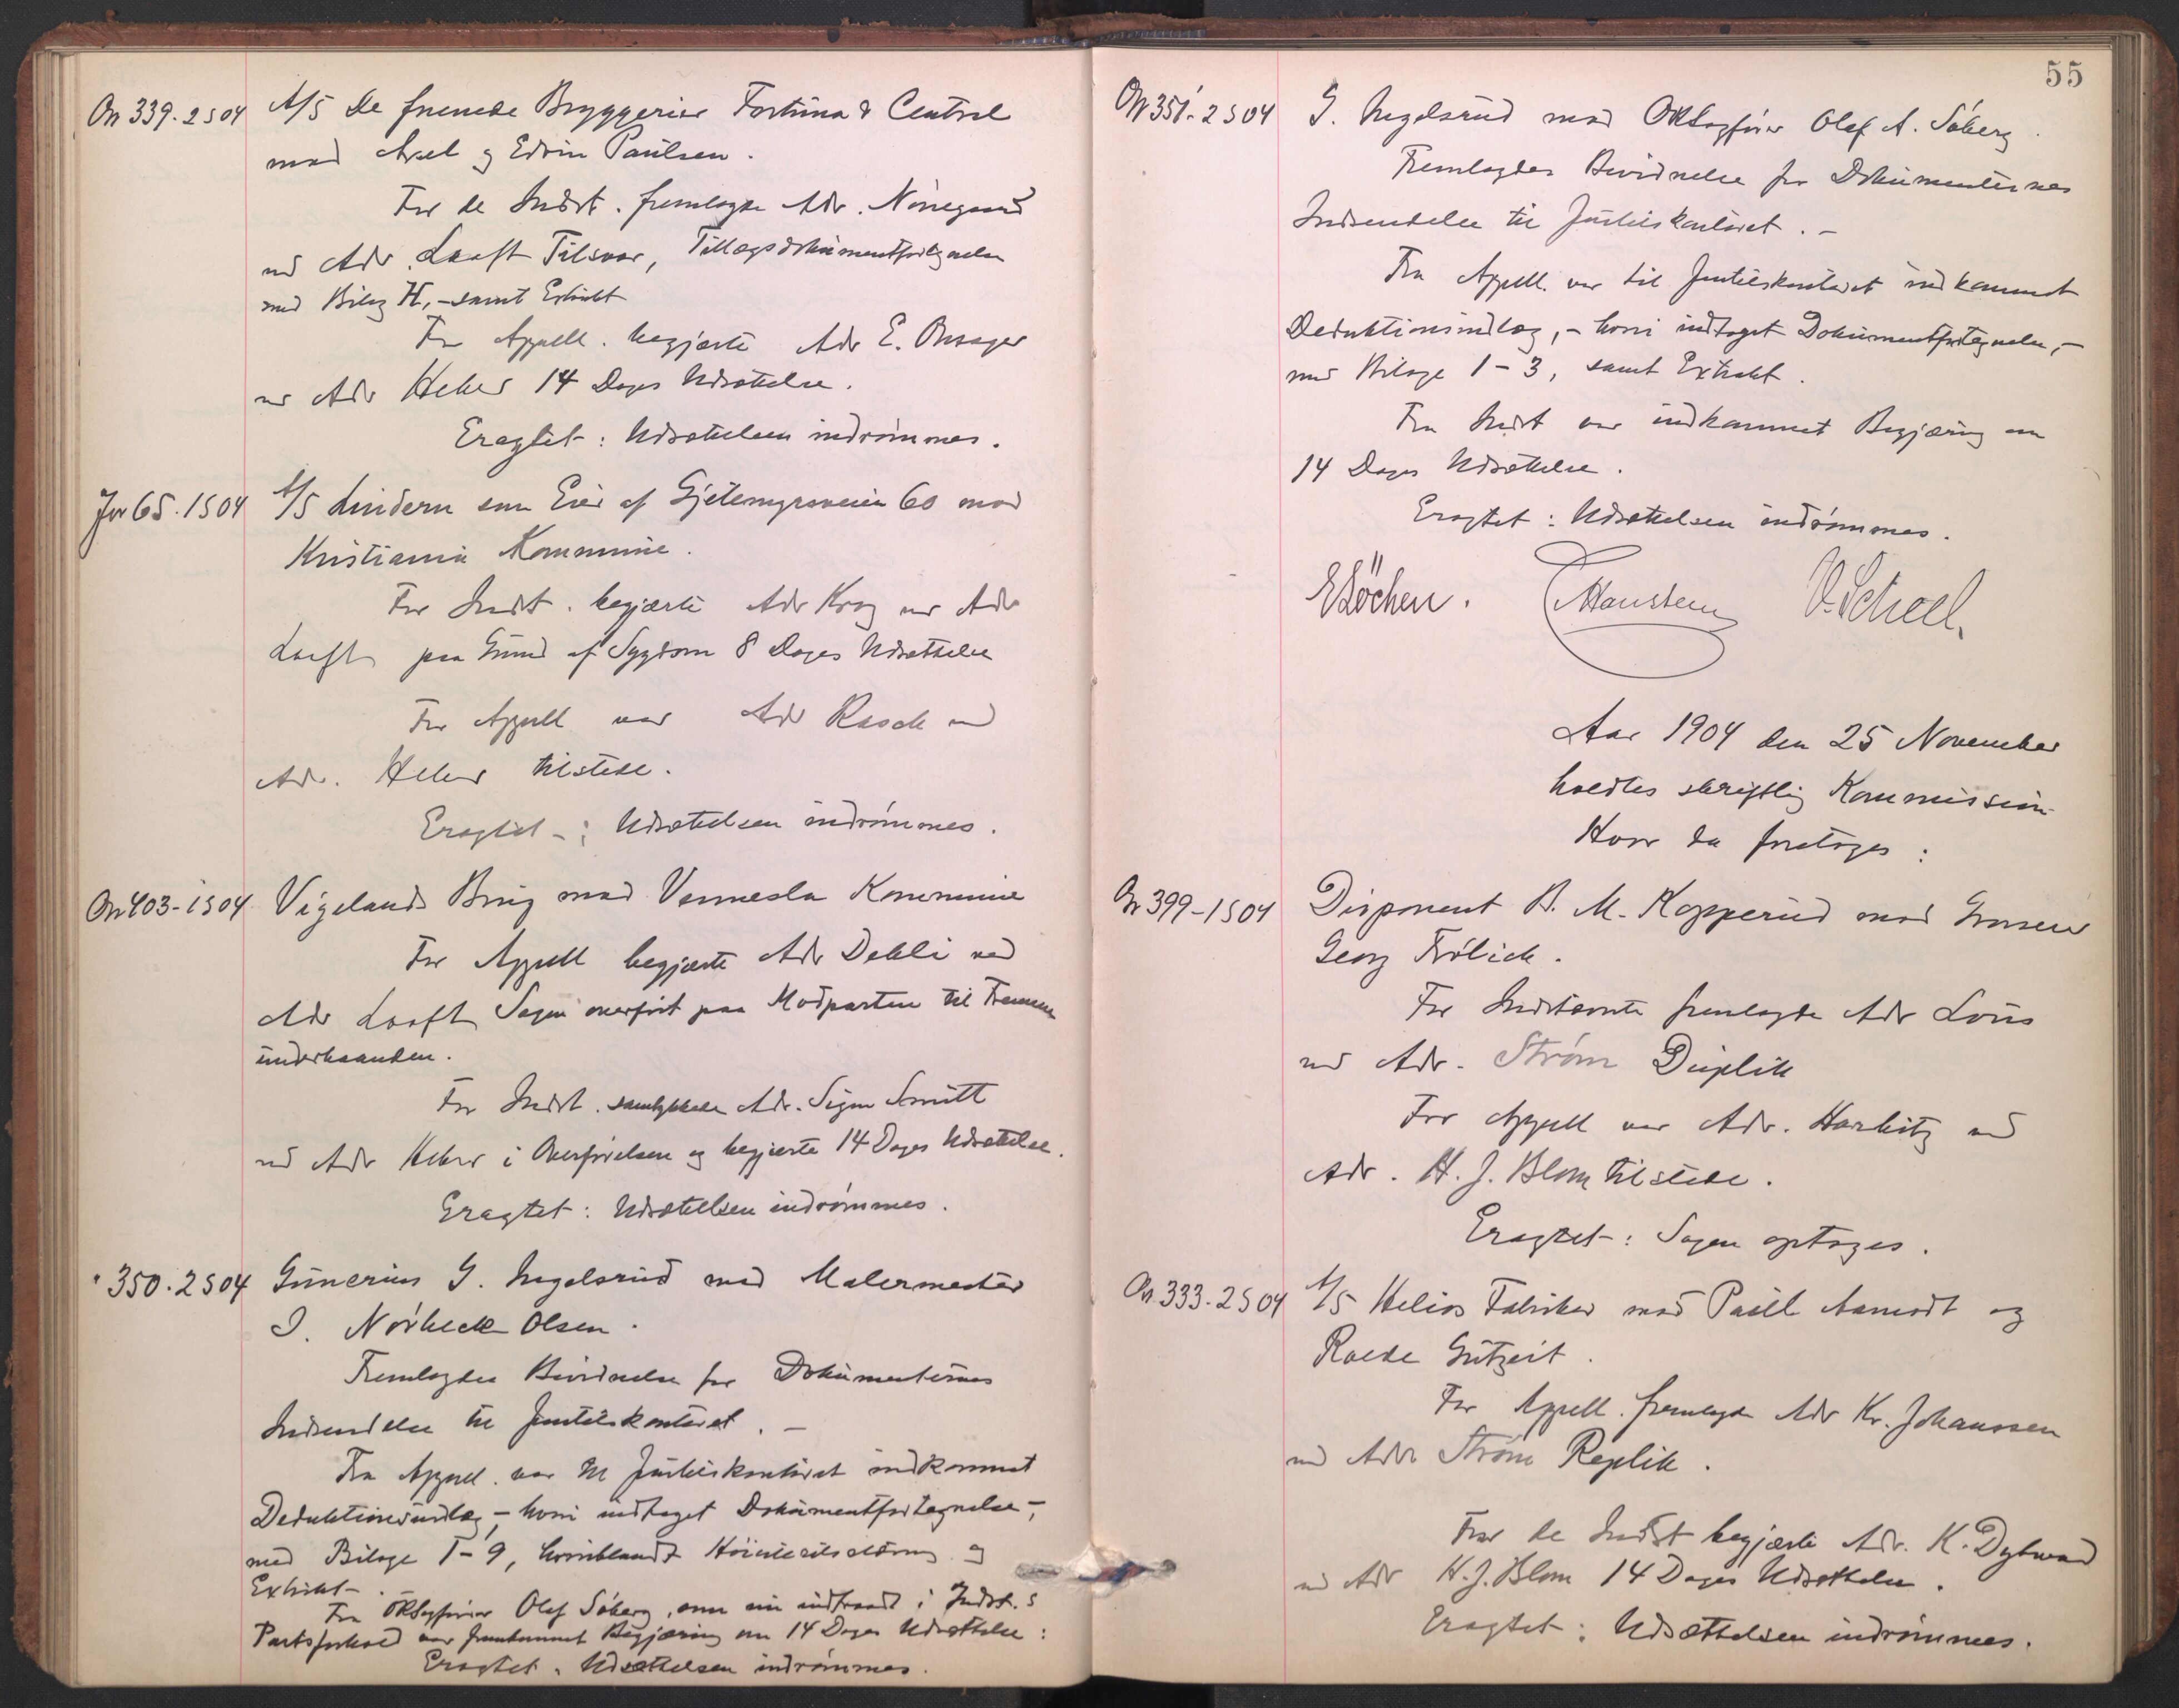 On 339-2 S 04
A/S De forenede Bryggerier Fortuna & Central
mod Axel og Edvin Paulsen.
For de Indst. fremlagde Adv. Nörregaard
ved Adv. Looft Tilsvar, Tillægsdokumentfortegnelse
med Bilag H, - samt Extrakt
For Appell. begjærte Adv E. Onsager
ved Adv Heber 14 Dages Udsættelse.
Eragtet: Udsættelsen indrömmes.
Jvr 65. 1 S 04
A/S Lindern som Eier af Gjetemyrsveien 60 mod
Kristiania Kommune.
For Indst. begjærte Adv Krag ved Adv
Looft paa Grund af Sygdom 8 Dages Udsættelse
For Appell var Adv Rasch ved
Adv. Heber tilstede.
Eragtet: Udsættelsen indrömmes.
On 403-1 S 04
Vigelands Brug mod Vennesla Kommune
For Appell begjærte Adv Dehli ved
Adv Looft Sagen overfört paa Modparten til Fremme
underhaanden.
For Indst. samtykkede Adv. Sigm Smitt
ved Adv Heber i Overförelsen og begjærte 14 Dages Udsættelse.
Eragtet: Udsættelsen indrömmes.
" 350. 2 S 04
Gunerius G. Ingelsrud mod Malermester
I. Nörbeck Olsen.
Fremlagdes Bevidnelse for Dokumenternes
Indsendelse til Justitskontoret. -
Fra Appell. var til Justitskontoret indkommet
Deduktionsindlæg, - hvori indtaget Dokumentfortegnelse, -
med Bilage 1-9, hvoriblandt og
Extrakt.
Fra ORSagförer Olaf Söberg, som nu indtraadt i Indst.s
Partsforhold var fremkommet Begjæring om 14 Dages Udsættelse:
Eragtet: Udsættelsen indrömmes.
55
On 351-2 S 04
G. Ingelsrud mod ORSagförer Olaf A. Söberg.
Fremlagdes Bevidnelse for Dokumenternes
Indsendelse til Justitskontoret. -
Fra Appell. var til Justitskontoret indkommet
Deduktionsindlæg, - hvori indtaget Dokumentfortegnelse, -
med Bilage 1-3, samt Extrakt.
Fra Indst var indkommet Begjæring om
14 Dages Udsættelse.
Eragtet: Udsættelsen indrömmes.
E Löchen. Hansteen V. Scheel.
Aar 1904 den 25 November
holdtes skriftlig Kommission
Hvor da foretoges:
On 399-1 S 04
Disponent B. M. Kopperud mod Grosserer
Georg Frölich.
For Indstævnte fremlagde Adv Lous
ved Adv. Ström Duplik
For Appell var Adv. Harbitz ved
Adv. H. J. Blom tilstede.
Eragtet: Sagen optages.
On 333. 2 S 04
A/S Helios Fabriker mod Paul Aamodt og
Roede Gutzeit.
For Appell. fremlagde Adv Kr. Johanssen
ved Adv Ström Replik.
For de Indst begjærte Adv. K. Dybwad
ved Adv H. J. Blom 14 Dages Udsættelse.
Eragtet: Udsættelsen indrömmes.